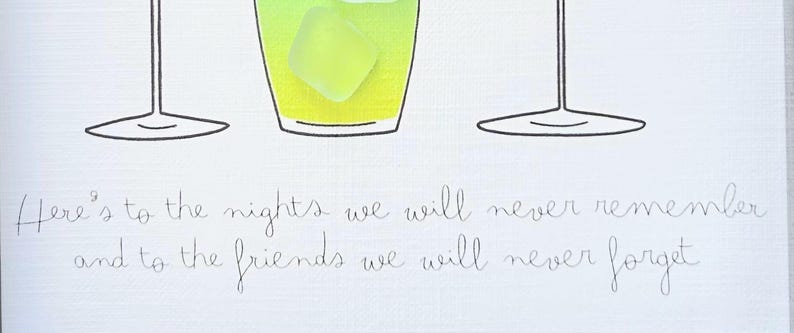 Here's to the nights we will never remember
and to the friends we will never forget